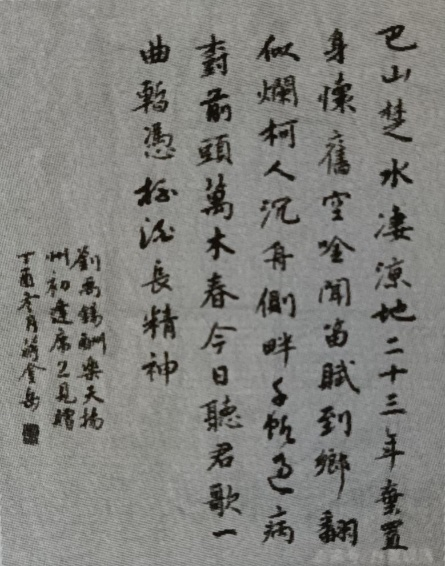 巴山楚水凄涼地二十三年棄置
身懷舊空唫聞笛賦到鄉翻
似爛柯人沉舟側畔千帆過病
樹前頭萬木春今日聽君歌一
曲暫憑杯酒長精神
劉禹錫酬樂天揚
州初逢席上見贈
丁酉冬月